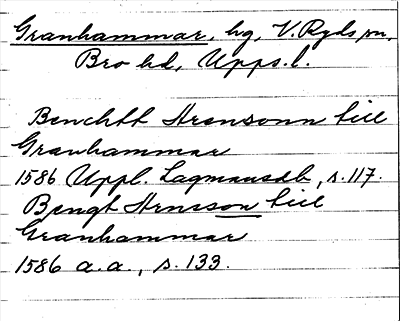 Granhammar, hg, V. Ryds sn,
Bro hd, Upps. l.
Benchtt Arensonn till
Granhammar
1586 Uppl. Lagmansdb, s. 117.
Bengt Arnsson till
Granhammar
1586 a.a., s. 133.